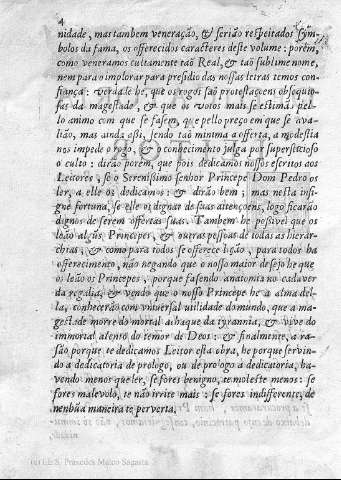 4
nidade, mas tambem veneração, & serião respeitados sym-
bolos da fama, os offerecidos caracteres deste volume: porèm,
como veneramos cultamente taõ Real, & taõ sublime nome,
nem para o implorar para presidio das nossas letras temos con-
fiança: verdade he, que os rogos saõ protestaçoens obsequio-
sas da magestade, & que os votos mais se estimaõ pel-
lo animo com que se fasem, que pello preço em que se ava-
lião, mas ainda assi, sendo taõ minima a offerta, a modestia
nos impede o rogo, & o conhecimento julga por superstecioso
o culto: dirão porèm, que pois dedicamos nossos escritos aos
Leitores, se o Serenissimo senhor Princepe Dom Pedro os
ler, a elle os dedicamos: & dirão bem; mas nesta insi-
gne fortuna, se elle os dignar de suas attençoens, logo ficarão
dignos de serem offertas suas. Tambem he possivel que os
leão algũs Princepes, & outras pessoas de todas as hierar-
chias, & como para todos se offerece lição, para todos ha
offerecimento, não negando que o nosso maior desejo he que
os leão os Princepes, porque fasendo anatomia no cadaver
da regalia, & vendo que o nosso Princepe he a alma del-
la, conhecerão com vniversal utilidade do mundo, que a ma-
gestade morre do mortal achaque da tyrannia, & vive do
immortal alento do temor de Deos: & finalmente, a ra-
são porque te dedicamos Leitor esta obra, he porque servin-
do a dedicatoria de prologo, ou de prologo a dedicatoria, ha-
vendo menos que ler, se fores benigno, te moleste menos: se
fores malevolo, te não irrite mais: se fores indifferente, de
nenhũa maneira te perverta.
(c) I.E.S. Práxedes Mateo Sagasta